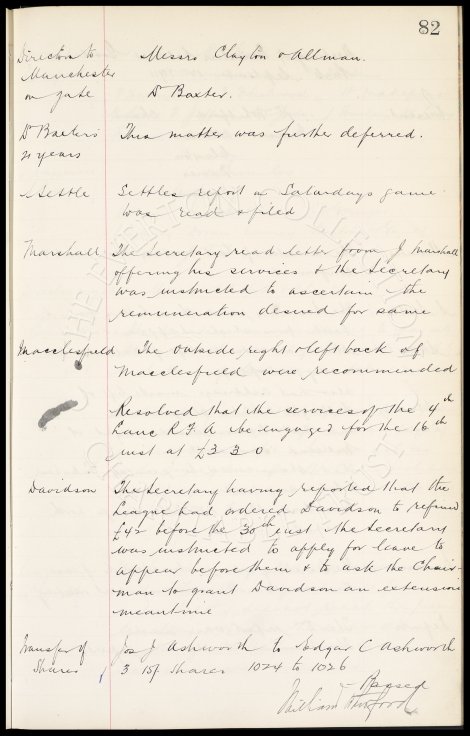 82
Directors to Messrs Clayton & Allman.
Manchester
on gate Dr Baxter.
Dr Baxter's This matter was further deferred.
21 years
Settle Settles report on Saturdays game
was read & filed
Marshall The Secretary read letter from J Marshall
offering his services & the Secretary
was instructed to ascertain the
remuneration desired for same
Macclesfield The outside right & left back of
Macclesfield were recommended
Resolved that the services of the 4th
Lanc R F A be engaged for the 16th
inst at £3 3 0
Davidson The Secretary having reported that the
League had ordered Davidson to refund
before the 30th inst the Secretary
was instructed to apply for leave to
appear before them & to ask the Chair-
man to grant Davidson an extension
meantime
Transfer of Jos J Ashworth to Edgar C Ashworth
Shares 3 Shares 1024 to 1026
Passed
William
THE EVERTON COLLECTION